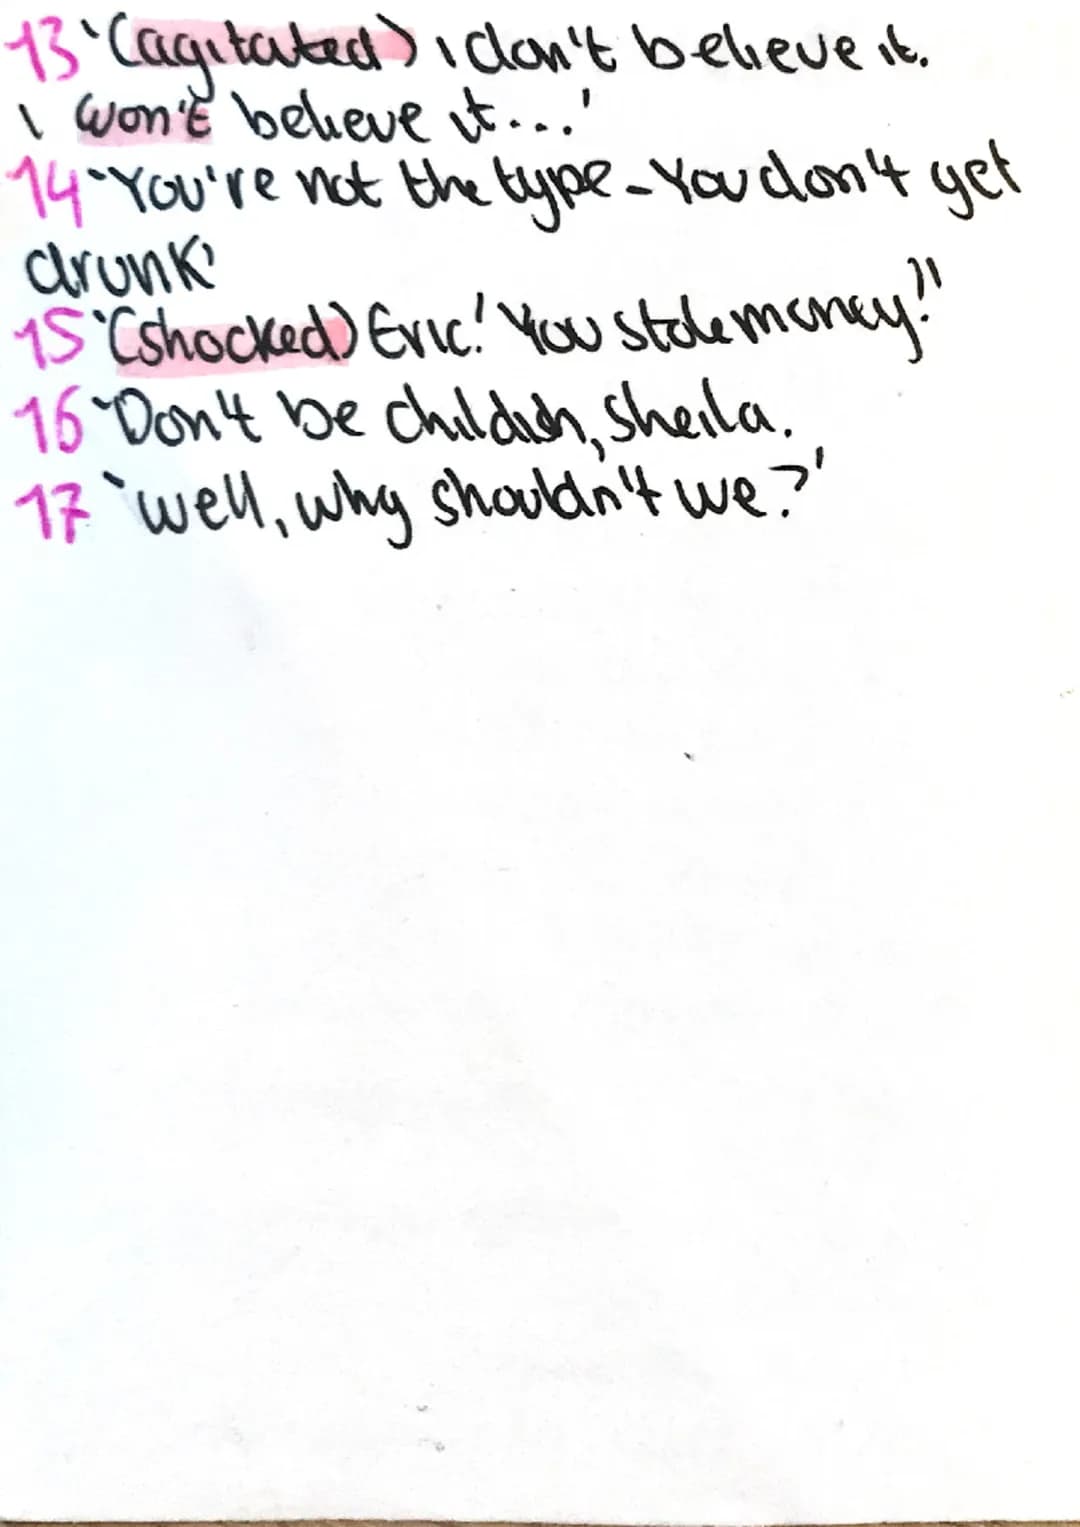 13 '(agitated) I don't believe it.
I won't believe it...'
14 'You're not the type - You don't get
drunk'
15 '(shocked) Eric! You stole money?!'
16 'Don't be childish, Sheila.
17 'well, why shouldn't we?'